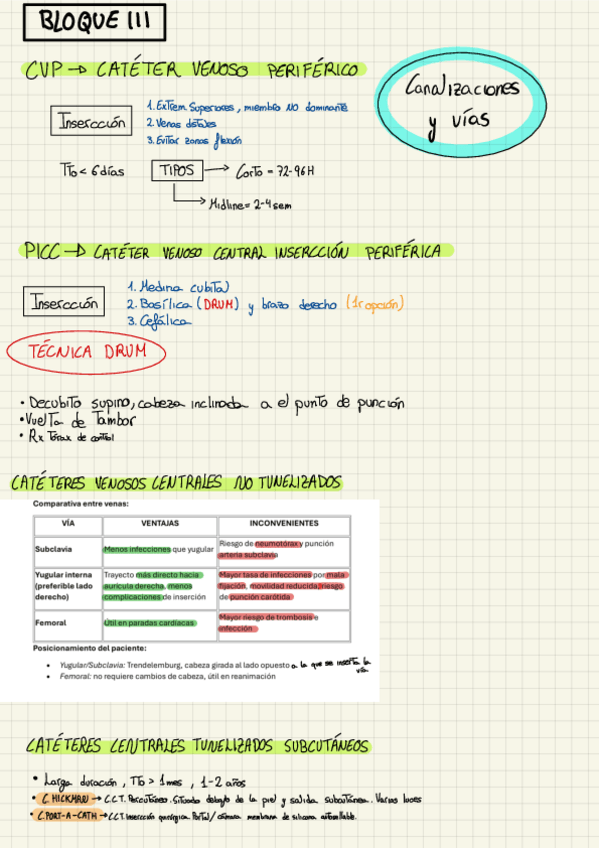 BLOQUE III
Canalizaciones
y vías
CVP → CATÉTER VENOSO PERIFÉRICO
Insercción
1. Extrem. Superiores, miembro NO dominante
2. Venas distales
3. Evitar zonas flexión
Tto < 6 días
TIPOS → Corto = 72-96H
Midline = 2-4 sem
PICC → CATÉTER VENOSO CENTRAL INSERCCIÓN PERIFÉRICA
Insercción
1. Mediana cubital
2. Basílica (DRUM) y brazo derecho (1ª opción)
3. Cefálica
TÉCNICA DRUM
• Decúbito supino, cabeza inclinada a el punto de punción
• Vuelta de Tambor
• Rx Tórax de control
CATÉTERES VENOSOS CENTRALES NO TUNELIZADOS
Comparativa entre venas:
VÍA VENTAJAS INCONVENIENTES
Subclavia Menos infecciones que yugular Riesgo de neumotórax y punción arteria subclavia
Yugular interna (preferible lado derecho) Trayecto más directo hacia aurícula derecha, menos complicaciones de inserción Mayor tasa de infecciones por mala fijación, movilidad reducida, riesgo de punción carótida
Femoral Útil en paradas cardíacas Mayor riesgo de trombosis e infección
Posicionamiento del paciente:
• Yugular/Subclavia: Trendelemburg, cabeza girada al lado opuesto a la que se inserta la vía
• Femoral: no requiere cambios de cabeza, útil en reanimación
CATÉTERES CENTRALES TUNELIZADOS SUBCUTÁNEOS
• Larga duración, Tto > 1 mes, 1-2 años
• C. HICKMAN → C.C.T. Percutáneo. Situado debajo de la piel y salida subcutánea. Varios luces
• C. PORT-A-CATH → C.C.T. Insercción quirúrgica. Portal/ cámara membrana de silicona autosellable.